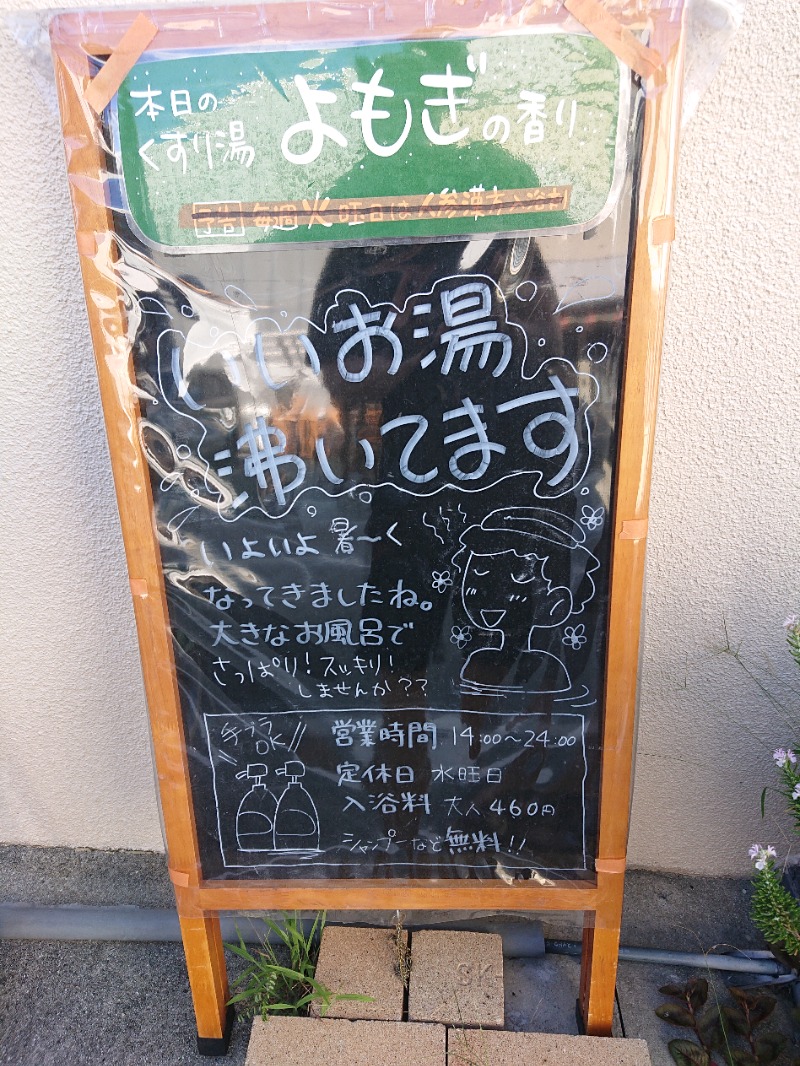 本日の
くすり湯 よもぎの香り
予告 毎週火曜日は人参漢方入浴剤
いいお湯
沸いてます
いよいよ 暑〜く
なってきましたね。
大きなお風呂で
さっぱり！スッキリ！
しませんか？？
手ブラ
OK!!
営業時間 14:00〜24:00
定休日 水曜日
入浴料 大人460円
シャンプーなど無料!!
SK